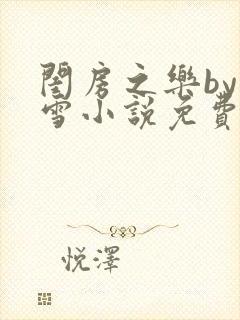 閨房之樂by
雪小說免費
悅澤